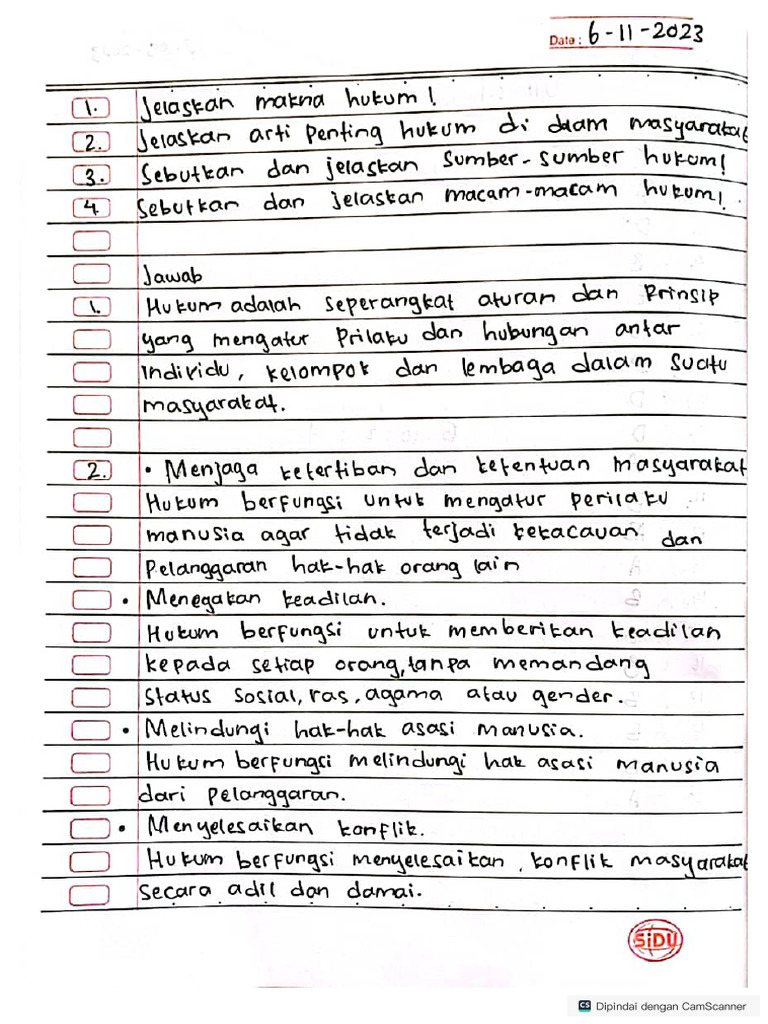 Date : 6-11-2023
1. Jelaskan makna hukum!
2. Jelaskan arti penting hukum di daam masyarakat
3. Sebutkan dan jelaskan sumber-sumber hukum!
4. Sebutkan dan jelaskan macam-macam hukum!
Jawab
1. Hukum adalah seperangkat aturan dan Prinsip
yang mengatur Prilaku dan hubungan antar
Individu, kelompok dan lembaga dalam suatu
masyarakat.
2. • Menjaga ketertiban dan ketentuan masyarakat
Hukum berfungsi untuk mengatur perilaku
manusia agar tidak terjadi kekacauan dan
Pelanggaran hak-hak orang lain
• Menegakan keadilan.
Hukum berfungsi untuk memberikan keadilan
kepada setiap orang, tanpa memandang
Status Sosial, ras, agama atau gender.
• Melindungi hak-hak asasi manusia.
Hukum berfungsi melindungi hak asasi manusia
dari pelanggaran.
• Menyelesaikan konflik.
Hukum berfungsi menyelesaikan, konflik masyarakat
Secara adil dan damai.
SiDU
CS Dipindai dengan CamScanner